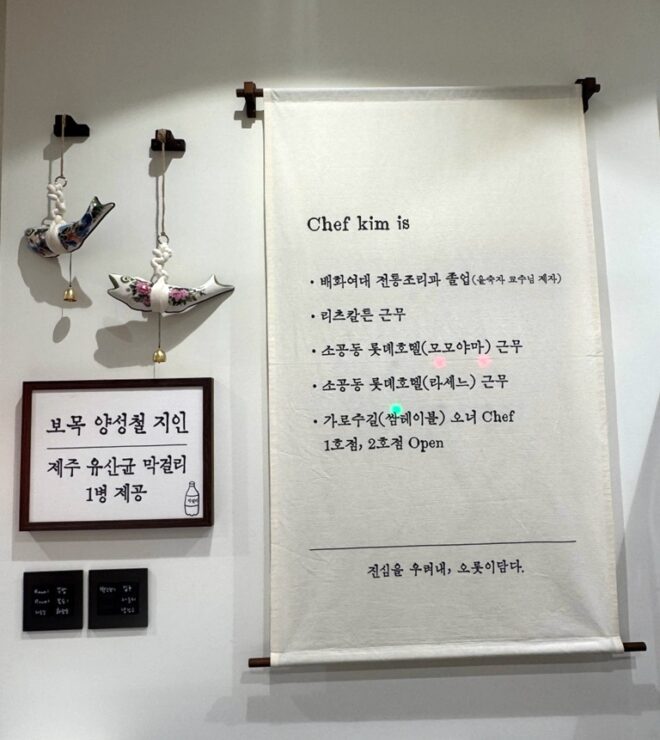 Chef kim is
· 배화여대 전통조리과 졸업(윤숙자 교수님 제자)
· 리츠칼튼 근무
· 소공동 롯데호텔(모모야마) 근무
· 소공동 롯데호텔(라세느) 근무
· 가로수길(쌈테이블) 오너 Chef
1호점, 2호점 Open
진심을 우려내, 오롯이담다.
보목 양성철 지인
제주 유산균 막걸리
1병 제공